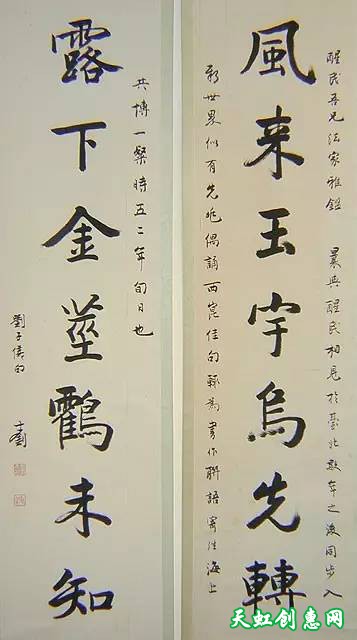 醒民吾兄法家雅鑑　曩與醒民相見於臺北數年之後同步入
風来玉宇烏先轉
新世界似有先兆偶誦西崑佳句輒為書作聯語寄往海上
共博一粲時五二年旬日也
露下金莖鸖未知
劉子侯
天虹创惠网